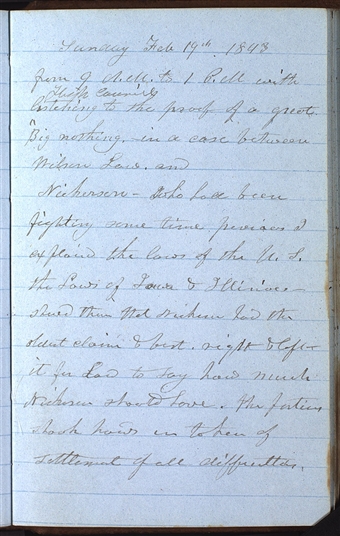 Sunday Feb 19th 1843
from 9 A.M. to 1 P.M with
High Council
listening to the proof of a great
Big nothing. in a case between
Wilson Law. and
Nickerson - who had been
fighting some time previous I
explaind the laws of the U. S.
the Laws of Iowa & Illinois
shewd them that Nickerson had the
oldest claim & best. right & left
it for Law to say how much
Nickerson should have. the parties
shook hands in token of
settlement of all difficulties.